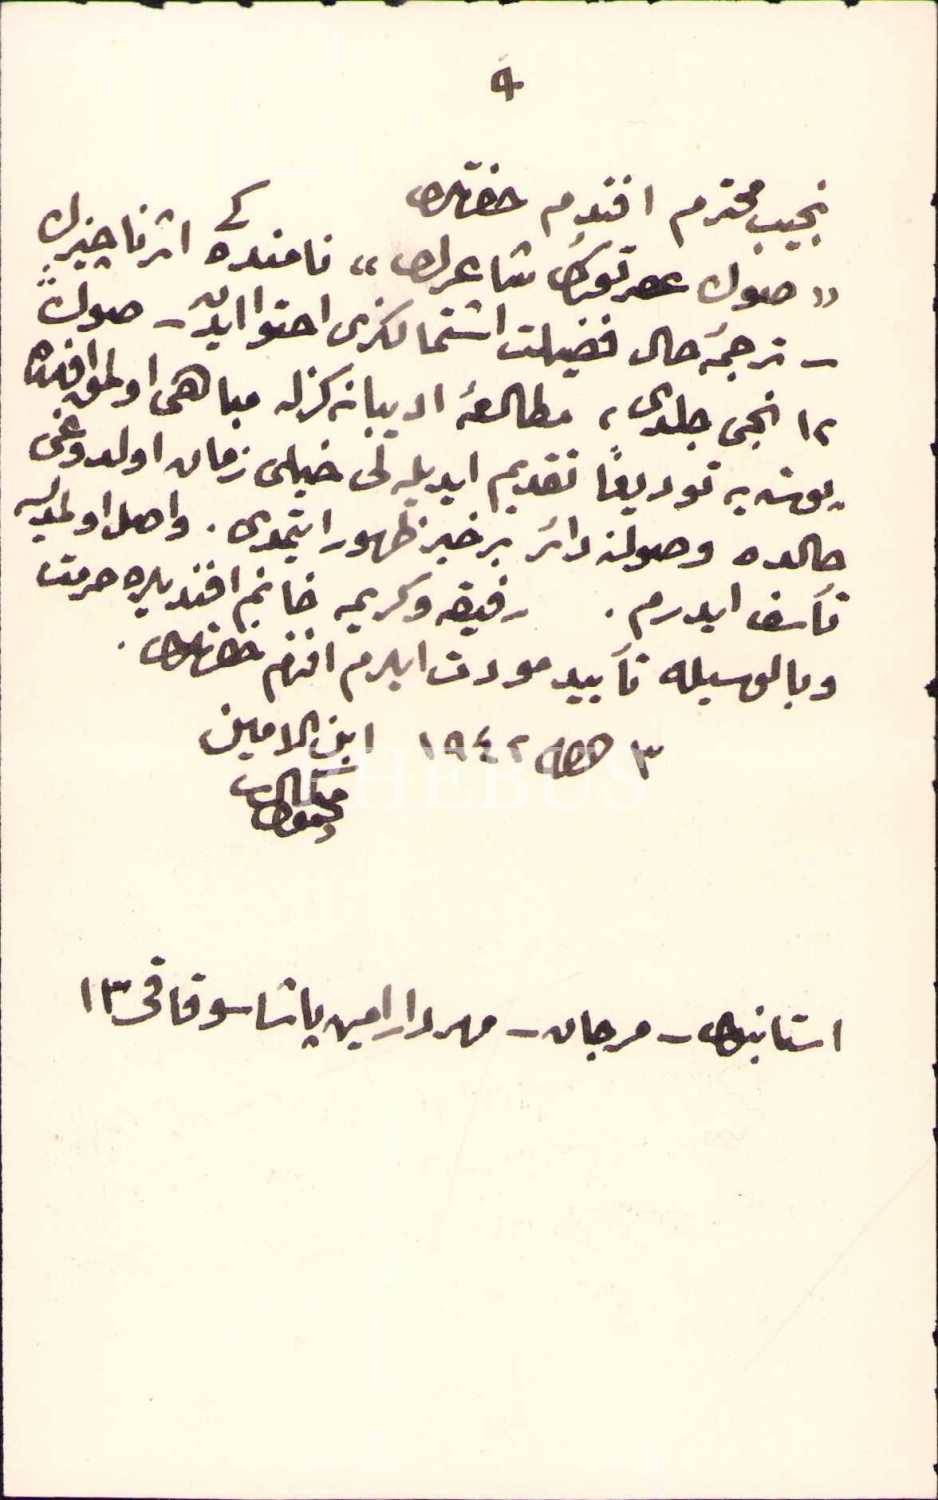 نجيب محترم افندم حضرتلرى
« صوك عصر تورك شاعرلرى » نامنده‌كى اثر ناچيزك
– ترجمۀ حال فضيلت اشتمالكزى احتوا ايدن – صوك
١٢ نجى جلدى ، مطالعۀ اديبانه‌كزله مباهى اولمق
پوسته‌يه توديعًا تقديم ايديله‌لى خيلى زمان اولدوغى
حالده وصولنه دائر بر خبر ظهور ايتمدى . واصل اولمديسه
تأسف ايدرم . رفيقه وكريمه خانم افنديلره حرمت
وبالوسيله تأييد مودت ايلرم افندم حضرتلرى .
٣ ١٩٤٢ ابن الامين
محمود كمال
استانبول – مرجان – مهردار امين پاشا سوقاقى ١٣
PHEBUS